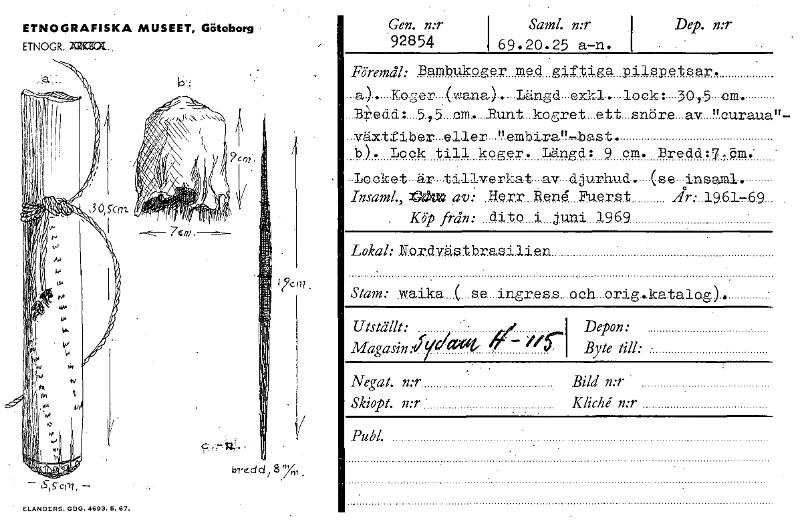 ETNOGRAFISKA MUSEET, Göteborg
ETNOGR.
a.
b.
30,5cm
9cm.
7cm.
19cm.
c.-n.
bredd, 8 m/m.
- 5,5cm. -
ELANDERS. GBG. 4693. 5. 67.
Gen. n:r
92854
Saml. n:r
69.20.25 a-n.
Dep. n:r
Föremål: Bambukoger med giftiga pilspetsar.
a). Koger (wana). Längd exkl. lock: 30,5 cm.
Bredd: 5,5 cm. Runt kogret ett snöre av "curaua"-
växtfiber eller "embira"-bast.
b). Lock till koger. Längd: 9 cm. Bredd:7 cm.
Locket är tillverkat av djurhud. (se insaml.
Insaml., av: Herr René Fuerst År: 1961-69
Köp från: dito i juni 1969
Lokal: Nordvästbrasilien
Stam: waika ( se ingress och orig.katalog).
Utställt:
Magasin: Sydam H-115
Depon:
Byte till:
Negat. n:r
Bild n:r
Skiopt. n:r
Kliché n:r
Publ.